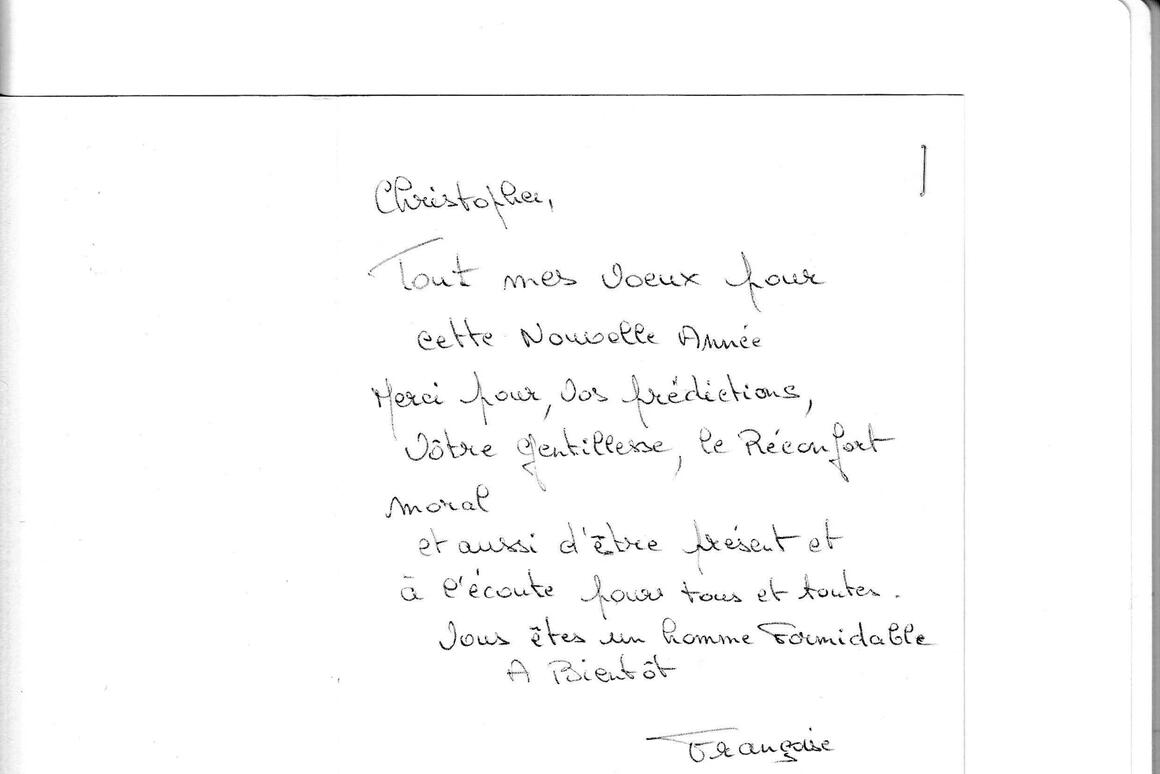 Christopher,
Tout mes Voeux pour
cette Nouvelle Année
Merci pour, Vos prédictions,
Vôtre gentillesse, le Réconfort
moral
et aussi d'être présent et
à l'écoute pour tous et toutes.
Vous êtes un homme Formidable
A Bientôt
Françoise